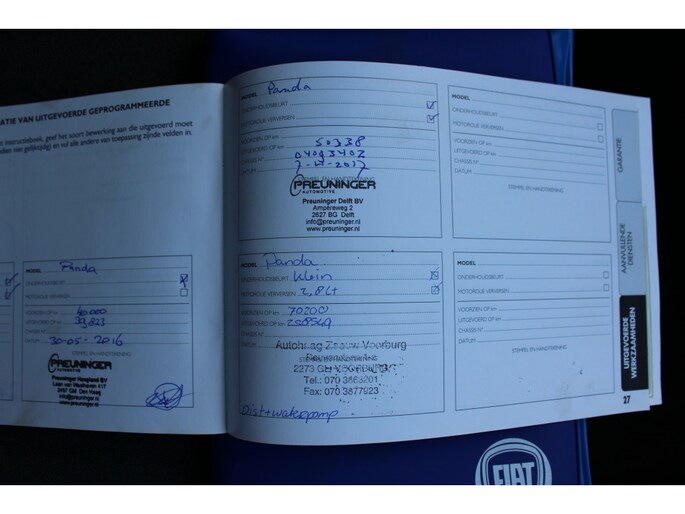 ATIE VAN UITGEVOERDE GEPROGRAMMEERDE
t instructieboek, geef het soort bewerking aan die uitgevoerd moet
den van gelijktijdig en vul alle andere van toepassing zijnde velden in.
MODEL Panda
ONDERHOUDSBEURT
MOTOROLIE VERVERSEN
VOORZIEN OP km 40.000
UITGEVOERD OP km 39.823
CHASSIS N°
DATUM 30-05-2016
STEMPEL EN HANDTEKENING
PREUNINGER
AUTOMOTIVE
Preuninger Haagland BV
2497 GM Den Haag
MODEL Panda
ONDERHOUDSBEURT
MOTOROLIE VERVERSEN
VOORZIEN OP km
UITGEVOERD OP km 50338
CHASSIS N° 0409340Z
DATUM
STEMPEL EN HANDTEKENING
PREUNINGER
AUTOMOTIVE
Preuninger Delft BV
Ampèreweg 2
2627 BG Delft
info@preuninger.nl
www.preuninger.nl
MODEL Panda
ONDERHOUDSBEURT Klein
MOTOROLIE VERVERSEN 2,8Lt
VOORZIEN OP km 70200
UITGEVOERD OP km
CHASSIS N°
DATUM
Autohag Zeeuw Voorburg
2273
Tel.: 070 3863201
Fax: 070 3877923
Dist+waterpomp
MODEL
ONDERHOUDSBEURT
MOTOROLIE VERVERSEN
VOORZIEN OP km
UITGEVOERD OP km
CHASSIS N°
DATUM
STEMPEL EN HANDTEKENING
MODEL
ONDERHOUDSBEURT
MOTOROLIE VERVERSEN
VOORZIEN OP km
UITGEVOERD OP km
CHASSIS N°
DATUM
STEMPEL EN HANDTEKENING
GARANTIE
AANVULLENDE
DIENSTEN
UITGEVOERDE
WERKZAAMHEDEN
27
FIAT